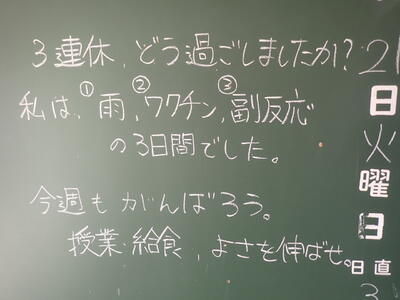 3連休、どう過ごしましたか?
私は、①雨、②ワクチン、③副反応
の3日間でした。
今週もがんばろう。
授業・給食、よさを伸ばせ。
21
日
火
曜
日
日直